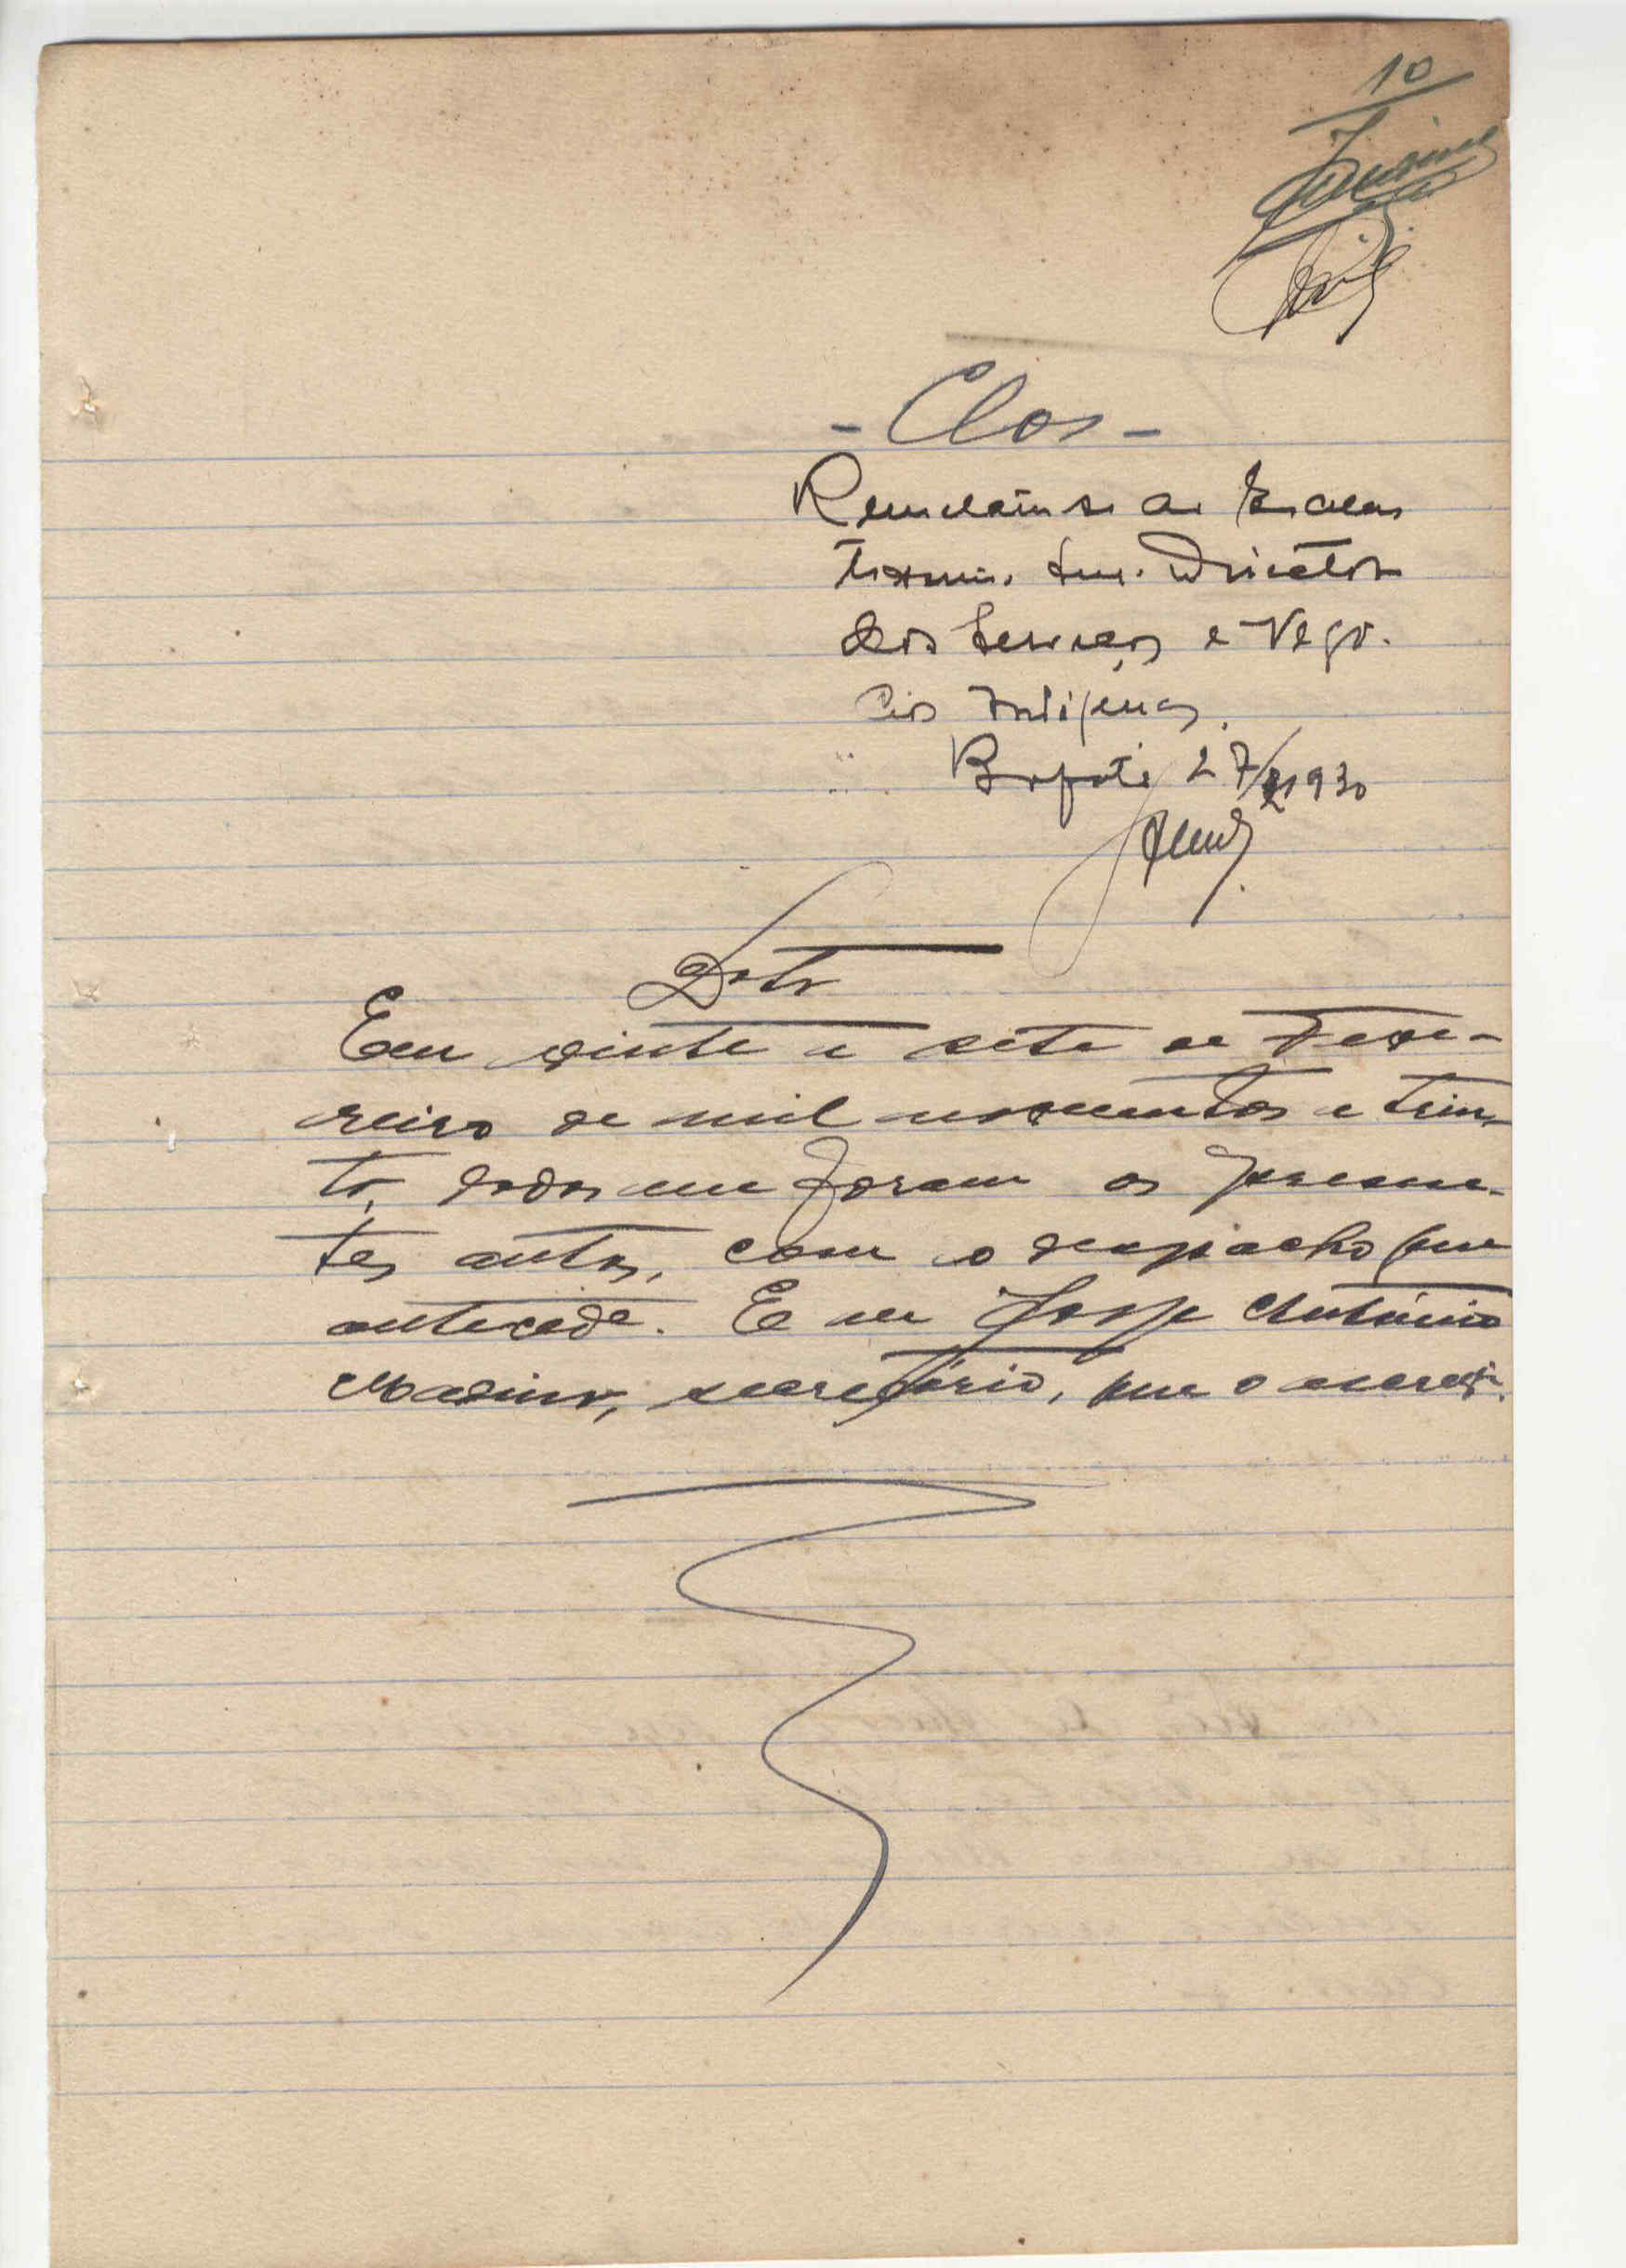 10
- Clos -
Remetam-se ao Excelen
tissimo Snr. Director
dos Serviços e Nego-
cios Indigenas.
27/2/1930
Data
Em vinte e sete de Feve-
reiro de mil novecentos e trin-
ta, dados me foram os presen-
tes autos, com o despacho que
antecede. E eu José António
secretário, que o escrevi.